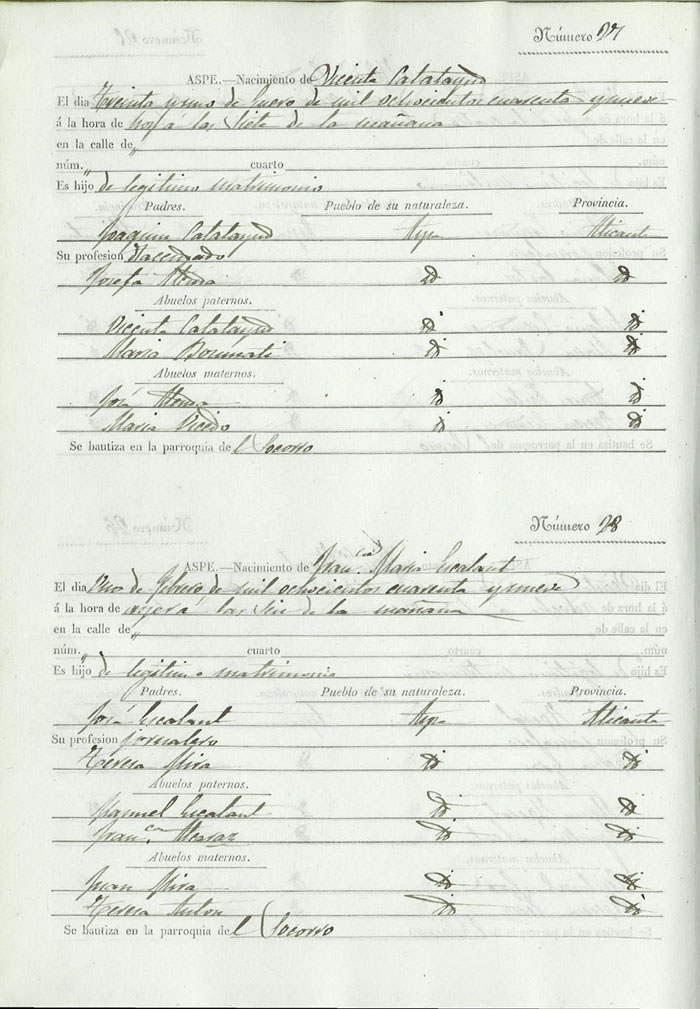 Número 27
ASPE.—Nacimiento de Vicenta Calatayud
El dia Treinta y uno de Enero de mil ochocientos cuarenta y nueve
á la hora de hoy á las siete de la mañana
en la calle de „
núm. „ cuarto
Es hijo de legitimo matrimonio
Padres. Pueblo de su naturaleza. Provincia.
Joaquin Calatayud Aspe Alicante
Su profesion Hacendado
Josefa id id
Abuelos paternos.
Vicente Calatayud id id
Maria id id
Abuelos maternos.
José id id
Maria Vicedo id id
Se bautiza en la parroquia del Socorro
Número 28
ASPE.—Nacimiento de Fran.ca Maria Escalant
El dia Uno de febrero de mil ochocientos cuarenta y nueve
á la hora de ayer á las seis de la mañana
en la calle de „
núm. „ cuarto
Es hijo de legitimo matrimonio
Padres. Pueblo de su naturaleza. Provincia.
José Escalant Aspe Alicante
Su profesion jornalero
Teresa Mira id id
Abuelos paternos.
Escalant id id
Fran.ca Alcaraz id id
Abuelos maternos.
Juan Mira id id
Teresa Anton id id
Se bautiza en la parroquia del Socorro